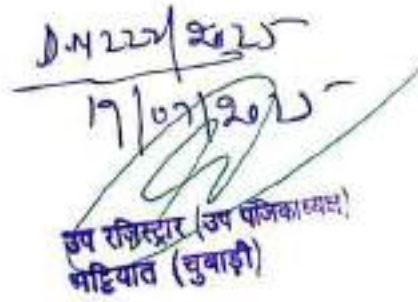 D.N 227/2025
19/07/2025
उप रजिस्ट्रार (उप पंजिकाध्यक्ष)
भट्टियात (चुवाड़ी)